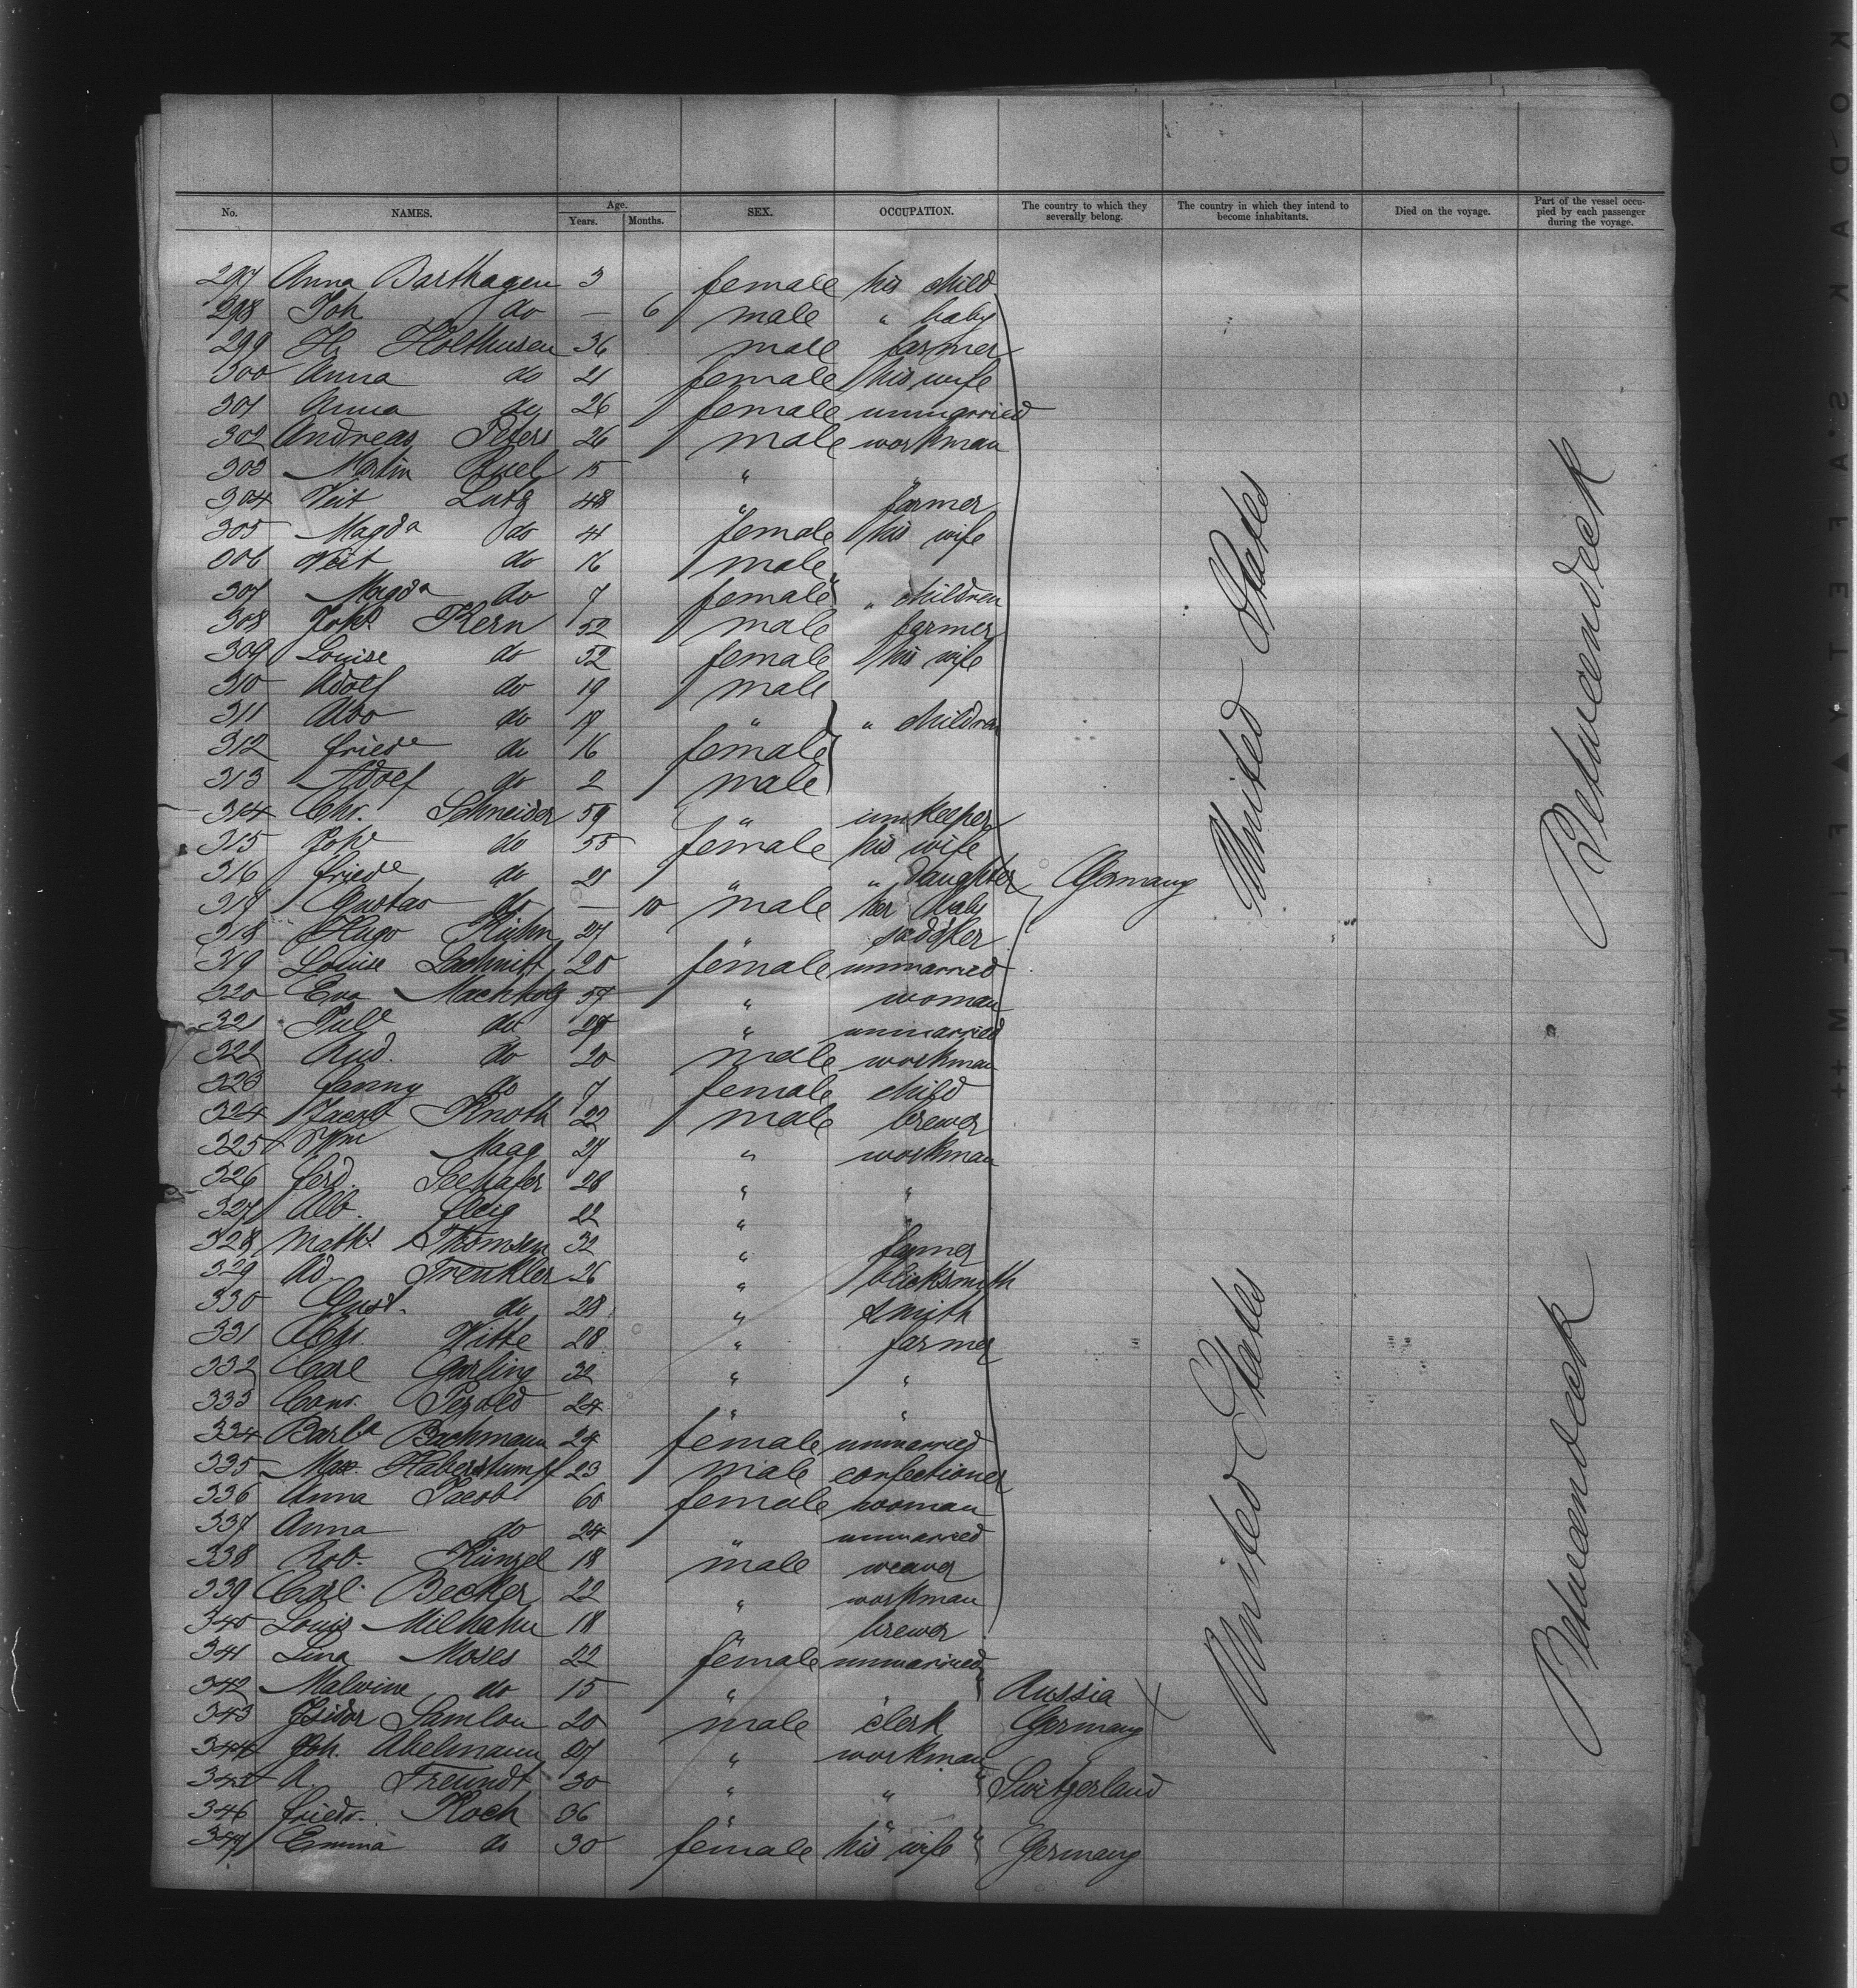 No. NAMES. Age. Years. Months. SEX. OCCUPATION. The country to which they severally belong. The country in which they intend to become inhabitants. Died on the voyage. Part of the vessel occupied by each passenger during the voyage.
297 Anna Barthagen 3 female his child
298 Joh do — 6 male " baby
299 Hr Holthusen 36 male farmer
300 Anna do 21 female his wife
301 Anna do 26 female unmarried
302 Andreas Peters 26 male workman
303 Martin Buel 15 " "
304 Veit Lutz 48 " farmer
305 Magda do 41 female his wife
306 Veit do 16 male
307 Magda do 7 female " children
308 Johs Kern 52 male farmer
309 Louise do 52 female his wife
310 Adolf do 19 male
311 do 18 " " children
312 Friede do 16 female
313 Adolf do 2 male
314 Chr. Schneider 59 " innkeeper
315 Johe do 55 female his wife
316 Friede do 21 " " daughter Germany United States Betweendeck
317 Gustav do — 10 male her baby
318 Hugo Kühn 27 "
319 Louise Lachnitt 20 female unmarried
320 Eva Machholz 57 " woman
321 Jule do 27 " unmarried
322 Rud. do 20 male workman
323 Jenny do 7 female child
324 Jacob Knoth 22 male brewer
325 Wm Maag 27 " workman
326 Ferd. Seehafer 28 " "
327 Alb. 22 " "
328 Maths Thomsen 32 " farmer
329 Ad. Trenkler 26 " blicksmith
330 Gust. do 28 " smith
331 Chr. Witte 28 " farmer
332 Carl Garling 32 " "
333 Conr. Pezold 24 " "
334 Barba Bachmann 24 female unmarried
335 Max. Haberstumpf 23 male confectioner
336 Anna Jacob 60 female woman
337 Anna do 24 " unmarried
338 Rob. Künzel 18 male weaver
339 Carl Becker 22 " workman
340 Louis Milhahn 18 " brewer
341 Lina Moses 22 female unmarried
342 Malwine do 15 " " Russia United States Betweendeck
343 Isidor Samlon 20 male clerk Germany
344 Joh. Abelmann 27 " workman
345 A. Freundt 30 " " Switzerland
346 Friedr. Koch 36 " "
347 Emma do 30 female his wife Germany
KODAK SAFETY FILM